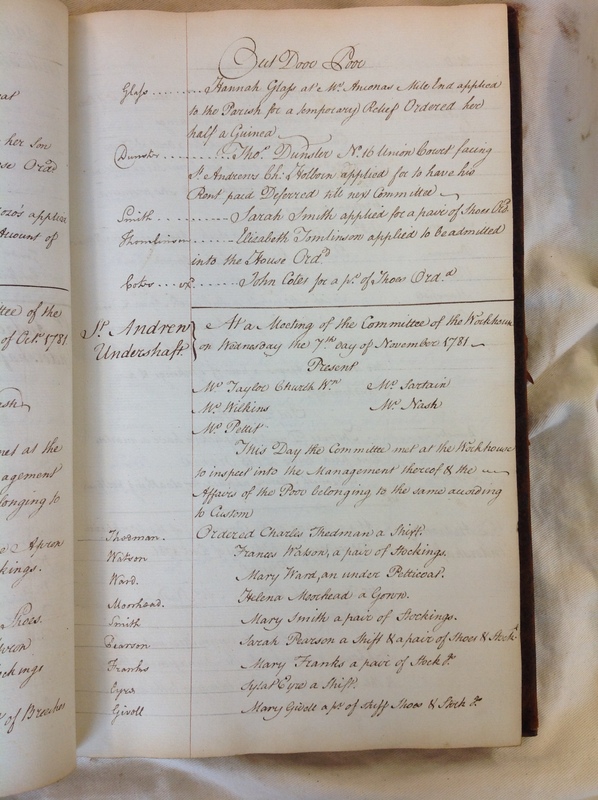 Out Door Poor
Glass ......... Hannah Glass at Mrs. Anconas Mile End applied
to the Parish for a temporary Relief Ordered her
half a Guinea
Dunster ......... Thos. Dunster No. 16 Union Court facing
St. Andrews Ch: Holborn applied for to have his
Rent paid Deferred till next Committee
Smith ......... Sarah Smith applied for a pair of Shoes Ord.
Thomlinson ...... Elizabeth Tomlinson applied to be admitted
into the House Ord.d
Coles ......... John Coles for a pr. of Shoes Ord.d
St. Andrew
Undershaft.
At a Meeting of the Committee of the Workhouse
on Wednesday the 7th day of November 1781
Present
Mr. Taylor Church Wn. Mr. Sartain
Mr. Wilkins Mr. Nash
Mr. Pettit
This Day the Committee met at the Workhouse
to inspect into the Management thereof & the
Affairs of the Poor belonging to the same according
to Custom
Thedman. Ordered Charles Thedman a Shift.
Watson Frances Watson, a pair of Stockings.
Ward. Mary Ward, an under Petticoat.
Moorhead. Helena Moorhead a Gown.
Smith Mary Smith a pair of Stockings.
Pearson Sarah Pearson a Shift & a pair of Shoes & Stock.
Franks Mary Franks a pair of Stock gs.
Eyre Eyre a Shift.
Givoll Mary Givoll a pr. of Shift Shoes & Stock gs.
her son
Ord.d
Amount of
of the
of Oct.r 1781
met at the
belonging to
Apron
Shoes.
of Breeches